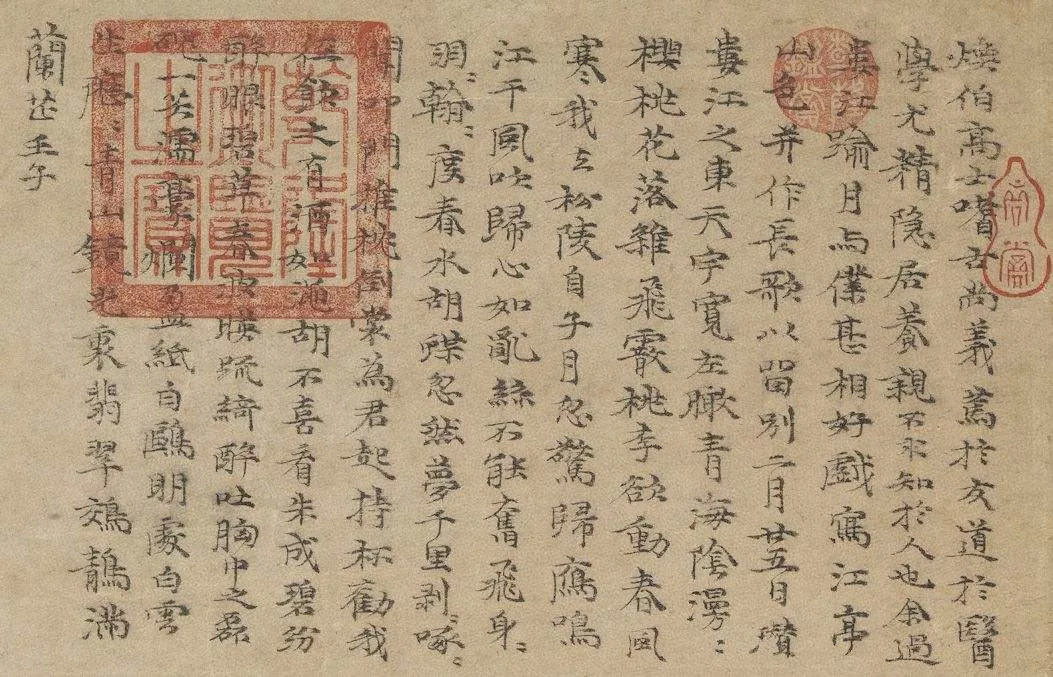 煥伯高士嗜古尚義篤於友道於醫
學尤精隐居養親不求知於人也余過
婁江踰月与僕甚相好戲寫江亭
山色并作長歌以留别二月廿五日瓚
婁江之東天宇寬左瞰青海陰漫〻
櫻桃花落雜飛霰桃李欲動春風
寒我去松陵自子月忽驚歸鴈鳴
江干風吹歸心如亂絲不能奮飛身〻
羽〻翰〻度春水胡蝶忽然夢千里剥〻啄〻
聞叩門推枕倒裳為君起持杯勸我
之有酒如澠胡不喜看朱成碧紛
醉眼碧草春波映疏綺醉吐胸中之磊
磈一笑濡毫爛盈紙白鷗明處白雲
生〻青山鏡光裏翡翠鵁鶄滿
蘭芷壬子